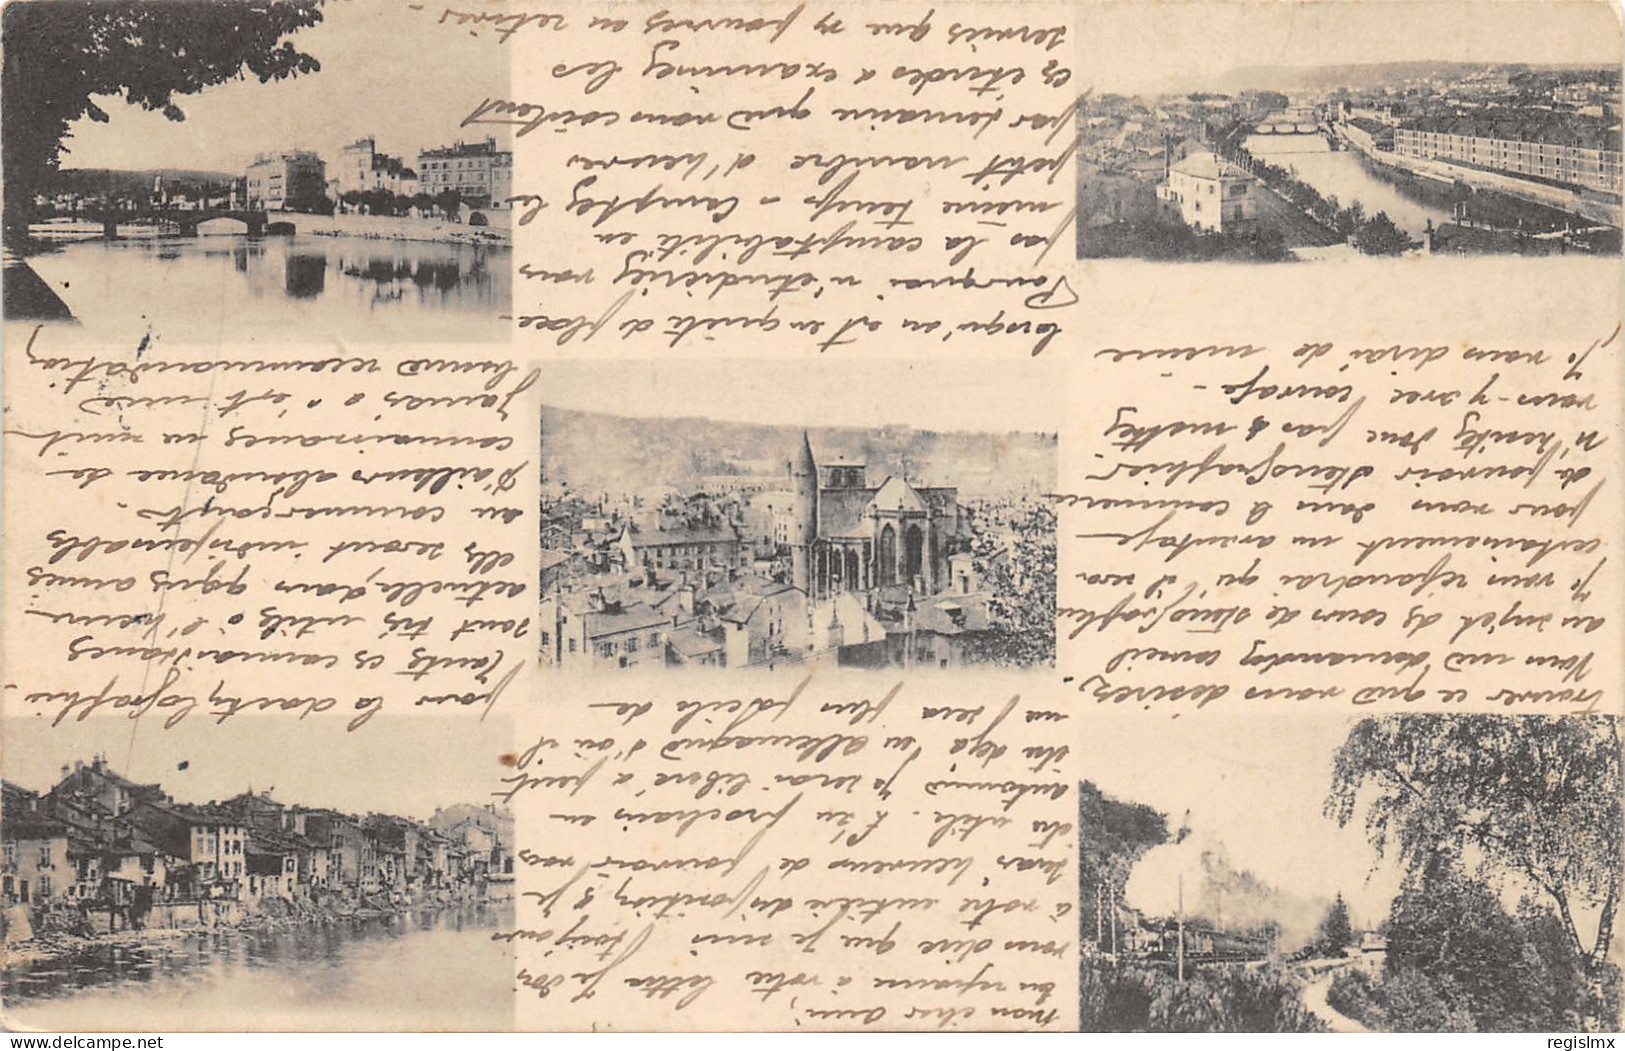 Mon cher ami,
En réponse à votre lettre je dois
vous dire que je suis toujours
à votre entière disposition, & je
serais heureux de pouvoir vous
être utile. L'an prochain en
automne je serai libéré à point
du déjà en allemagne d'où il
me sera plus facile de
trouver ce que vous désirez,
Vous me demandez conseil
au sujet des cours de sténographie
je vous répondrai qu'il y aura
certainement un avantage
pour vous dans le commerce
de pouvoir sténographier
N'hésitez donc pas & mettez
vous-y avec courage -
Je vous dirai de même
pour la dactylographie -
Toutes ces connaissances
sont très utiles à l'heure
actuelle, dans qques années
elles seront indispensables
au commerçant -
D'ailleurs abondance de
connaissances ne nuit
jamais & c'est une
bonne recommandation
lorsqu'on est en quête de place -
Pourquoi n'étudieriez vous
pas la comptabilité en
même temps - Comptez le
petit nombre d'heures
par semaine que vous coûtent
ces études & examinez les
services que vs pourrez en retirer -
regislmx